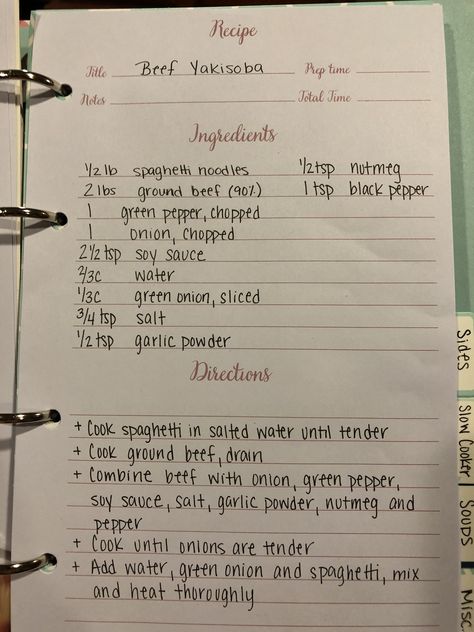 Recipe
Title Beef Yakisoba Prep time
Notes Total Time
Ingredients
1/2 lb spaghetti noodles 1/2 tsp nutmeg
2 lbs ground beef (90%) 1 tsp black pepper
1 green pepper, chopped
1 onion, chopped
2 1/2 tsp soy sauce
2/3c water
1/3c green onion, sliced
3/4 tsp salt
1/2 tsp garlic powder
Directions
+ Cook spaghetti in salted water until tender
+ Cook ground beef, drain
+ Combine beef with onion, green pepper,
soy sauce, salt, garlic powder, nutmeg and
pepper
+ Cook until onions are tender
+ Add water, green onion and spaghetti, mix
and heat thoroughly
Sides
Slow Cooker
Soups
Misc